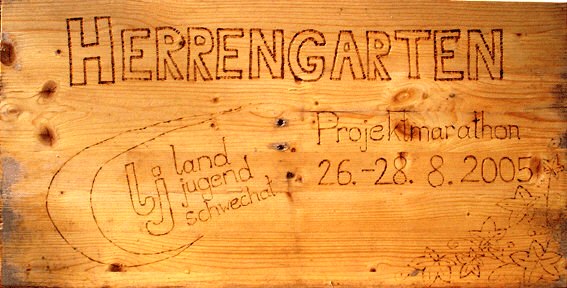 HERRENGARTEN
Projektmarathon
26.-28.8.2005
lj
land
jugend
schwechat